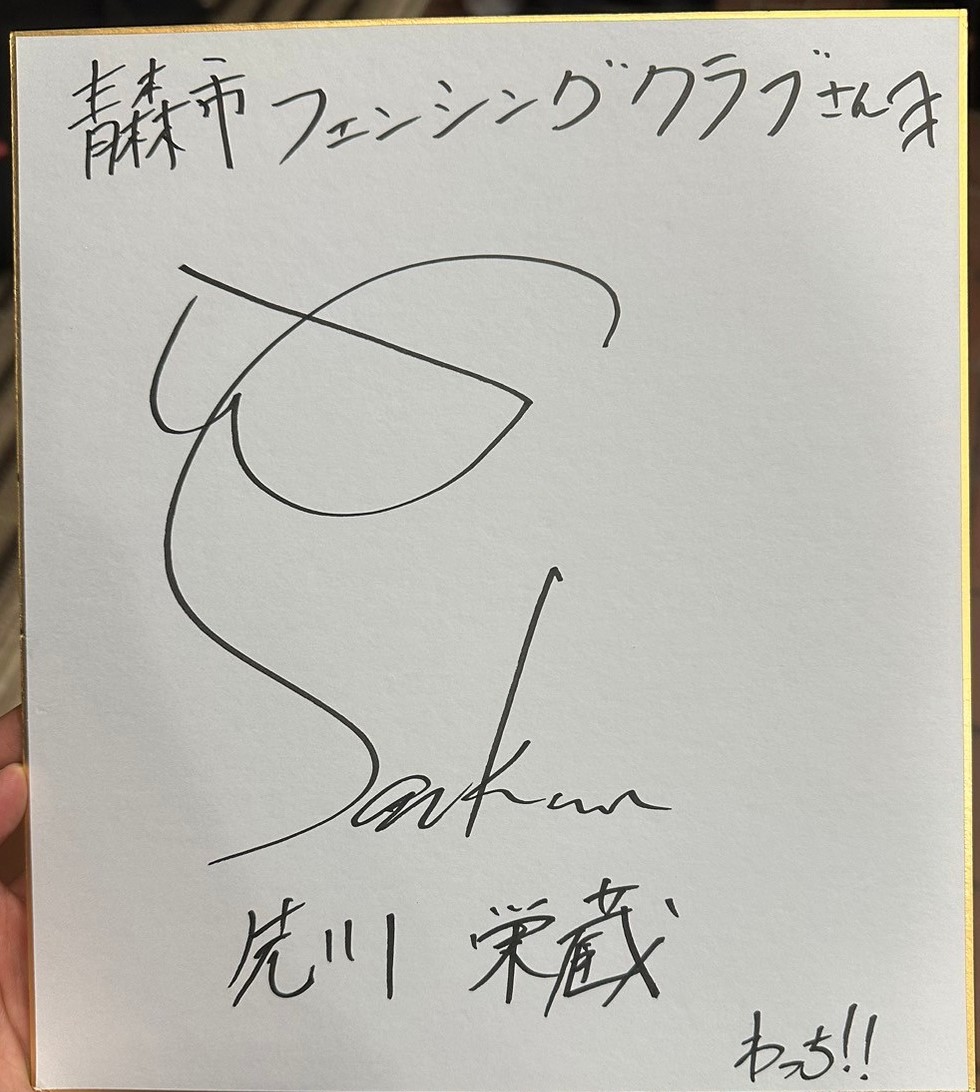 青森市フェンシングクラブさん江
Saikawa
先川 栄蔵
わっち!!